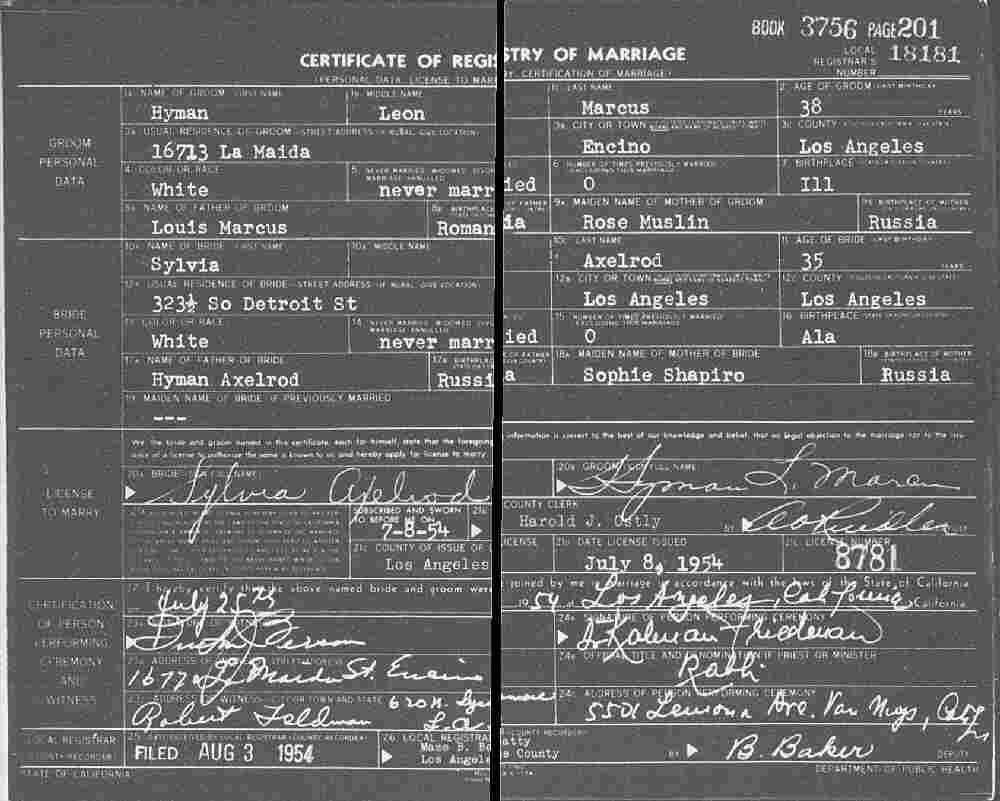 BOOK 3756 PAGE 201
CERTIFICATE OF REGISTRY OF MARRIAGE
LOCAL REGISTRAR'S NUMBER 18181
(PERSONAL DATA, LICENSE TO MARRY, CERTIFICATION OF MARRIAGE)
GROOM PERSONAL DATA
1A. NAME OF GROOM—FIRST NAME 1B. MIDDLE NAME 1C. LAST NAME 2. AGE OF GROOM (LAST BIRTHDAY)
Hyman Leon Marcus 38 YEARS
3A. USUAL RESIDENCE OF GROOM—STREET ADDRESS (IF RURAL, GIVE LOCATION) 3B. CITY OR TOWN 3C. COUNTY
16713 La Maida Encino Los Angeles
4. COLOR OR RACE 5. NEVER MARRIED, WIDOWED 6. NUMBER OF TIMES PREVIOUSLY MARRIED 7. BIRTHPLACE
White never married 0 Ill
8A. NAME OF FATHER OF GROOM 8B. BIRTHPLACE OF FATHER 9A. MAIDEN NAME OF MOTHER OF GROOM 9B. BIRTHPLACE OF MOTHER
Louis Marcus Roman ia Rose Muslin Russia
BRIDE PERSONAL DATA
10A. NAME OF BRIDE—FIRST NAME 10B. MIDDLE NAME 10C. LAST NAME 11. AGE OF BRIDE (LAST BIRTHDAY)
Sylvia Axelrod 35 YEARS
12A. USUAL RESIDENCE OF BRIDE—STREET ADDRESS (IF RURAL, GIVE LOCATION) 12B. CITY OR TOWN 12C. COUNTY
323½ So Detroit St Los Angeles Los Angeles
13. COLOR OR RACE 14. NEVER MARRIED, WIDOWED 15. NUMBER OF TIMES PREVIOUSLY MARRIED 16. BIRTHPLACE
White never married 0 Ala
17A. NAME OF FATHER OF BRIDE 17B. BIRTHPLACE OF FATHER 18A. MAIDEN NAME OF MOTHER OF BRIDE 18B. BIRTHPLACE OF MOTHER
Hyman Axelrod Russia Sophie Shapiro Russia
19. MAIDEN NAME OF BRIDE IF PREVIOUSLY MARRIED
---
LICENSE TO MARRY
We, the bride and groom named in this certificate, each for himself, state that the foregoing information is correct to the best of our knowledge and belief, that no legal objection to the marriage nor to the issu-
ance of a license to authorize the same is known to us and hereby apply for license to marry
20A. BRIDE FULL NAME 20B. GROOM FULL NAME
Sylvia Axelrod Hyman L. Marcus
SUBSCRIBED AND SWORN TO BEFORE ME ON 7-8-54
COUNTY CLERK
Harold J. Ostly BY
21C. COUNTY OF ISSUE OF LICENSE 21D. DATE LICENSE ISSUED 21E. LICENSE NUMBER
Los Angeles July 8, 1954 8781
CERTIFICATION OF PERSON PERFORMING CEREMONY AND WITNESS
22. I hereby certify that the above named bride and groom were joined by me in marriage in accordance with the laws of the State of California
July 25 1954 at Los Angeles, California California
24A. SIGNATURE OF PERSON PERFORMING CEREMONY
Kalman Friedman
24B. OFFICIAL TITLE AND DENOMINATION IF PRIEST OR MINISTER
Rabbi
23B. ADDRESS OF WITNESS—STREET ADDRESS
Encino
24C. ADDRESS OF PERSON PERFORMING CEREMONY
5501 Lemona Ave. Van Nuys, Calif
WITNESS—CITY OR TOWN AND STATE
Robert Feldman 620 N. L.A.
LOCAL REGISTRAR (COUNTY RECORDER)
25. DATE RECEIVED BY LOCAL REGISTRAR (COUNTY RECORDER) 26. LOCAL REGISTRAR (COUNTY RECORDER)
FILED AUG 3 1954 Mame B. Beatty Los Angeles County BY B. Baker DEPUTY
STATE OF CALIFORNIA DEPARTMENT OF PUBLIC HEALTH